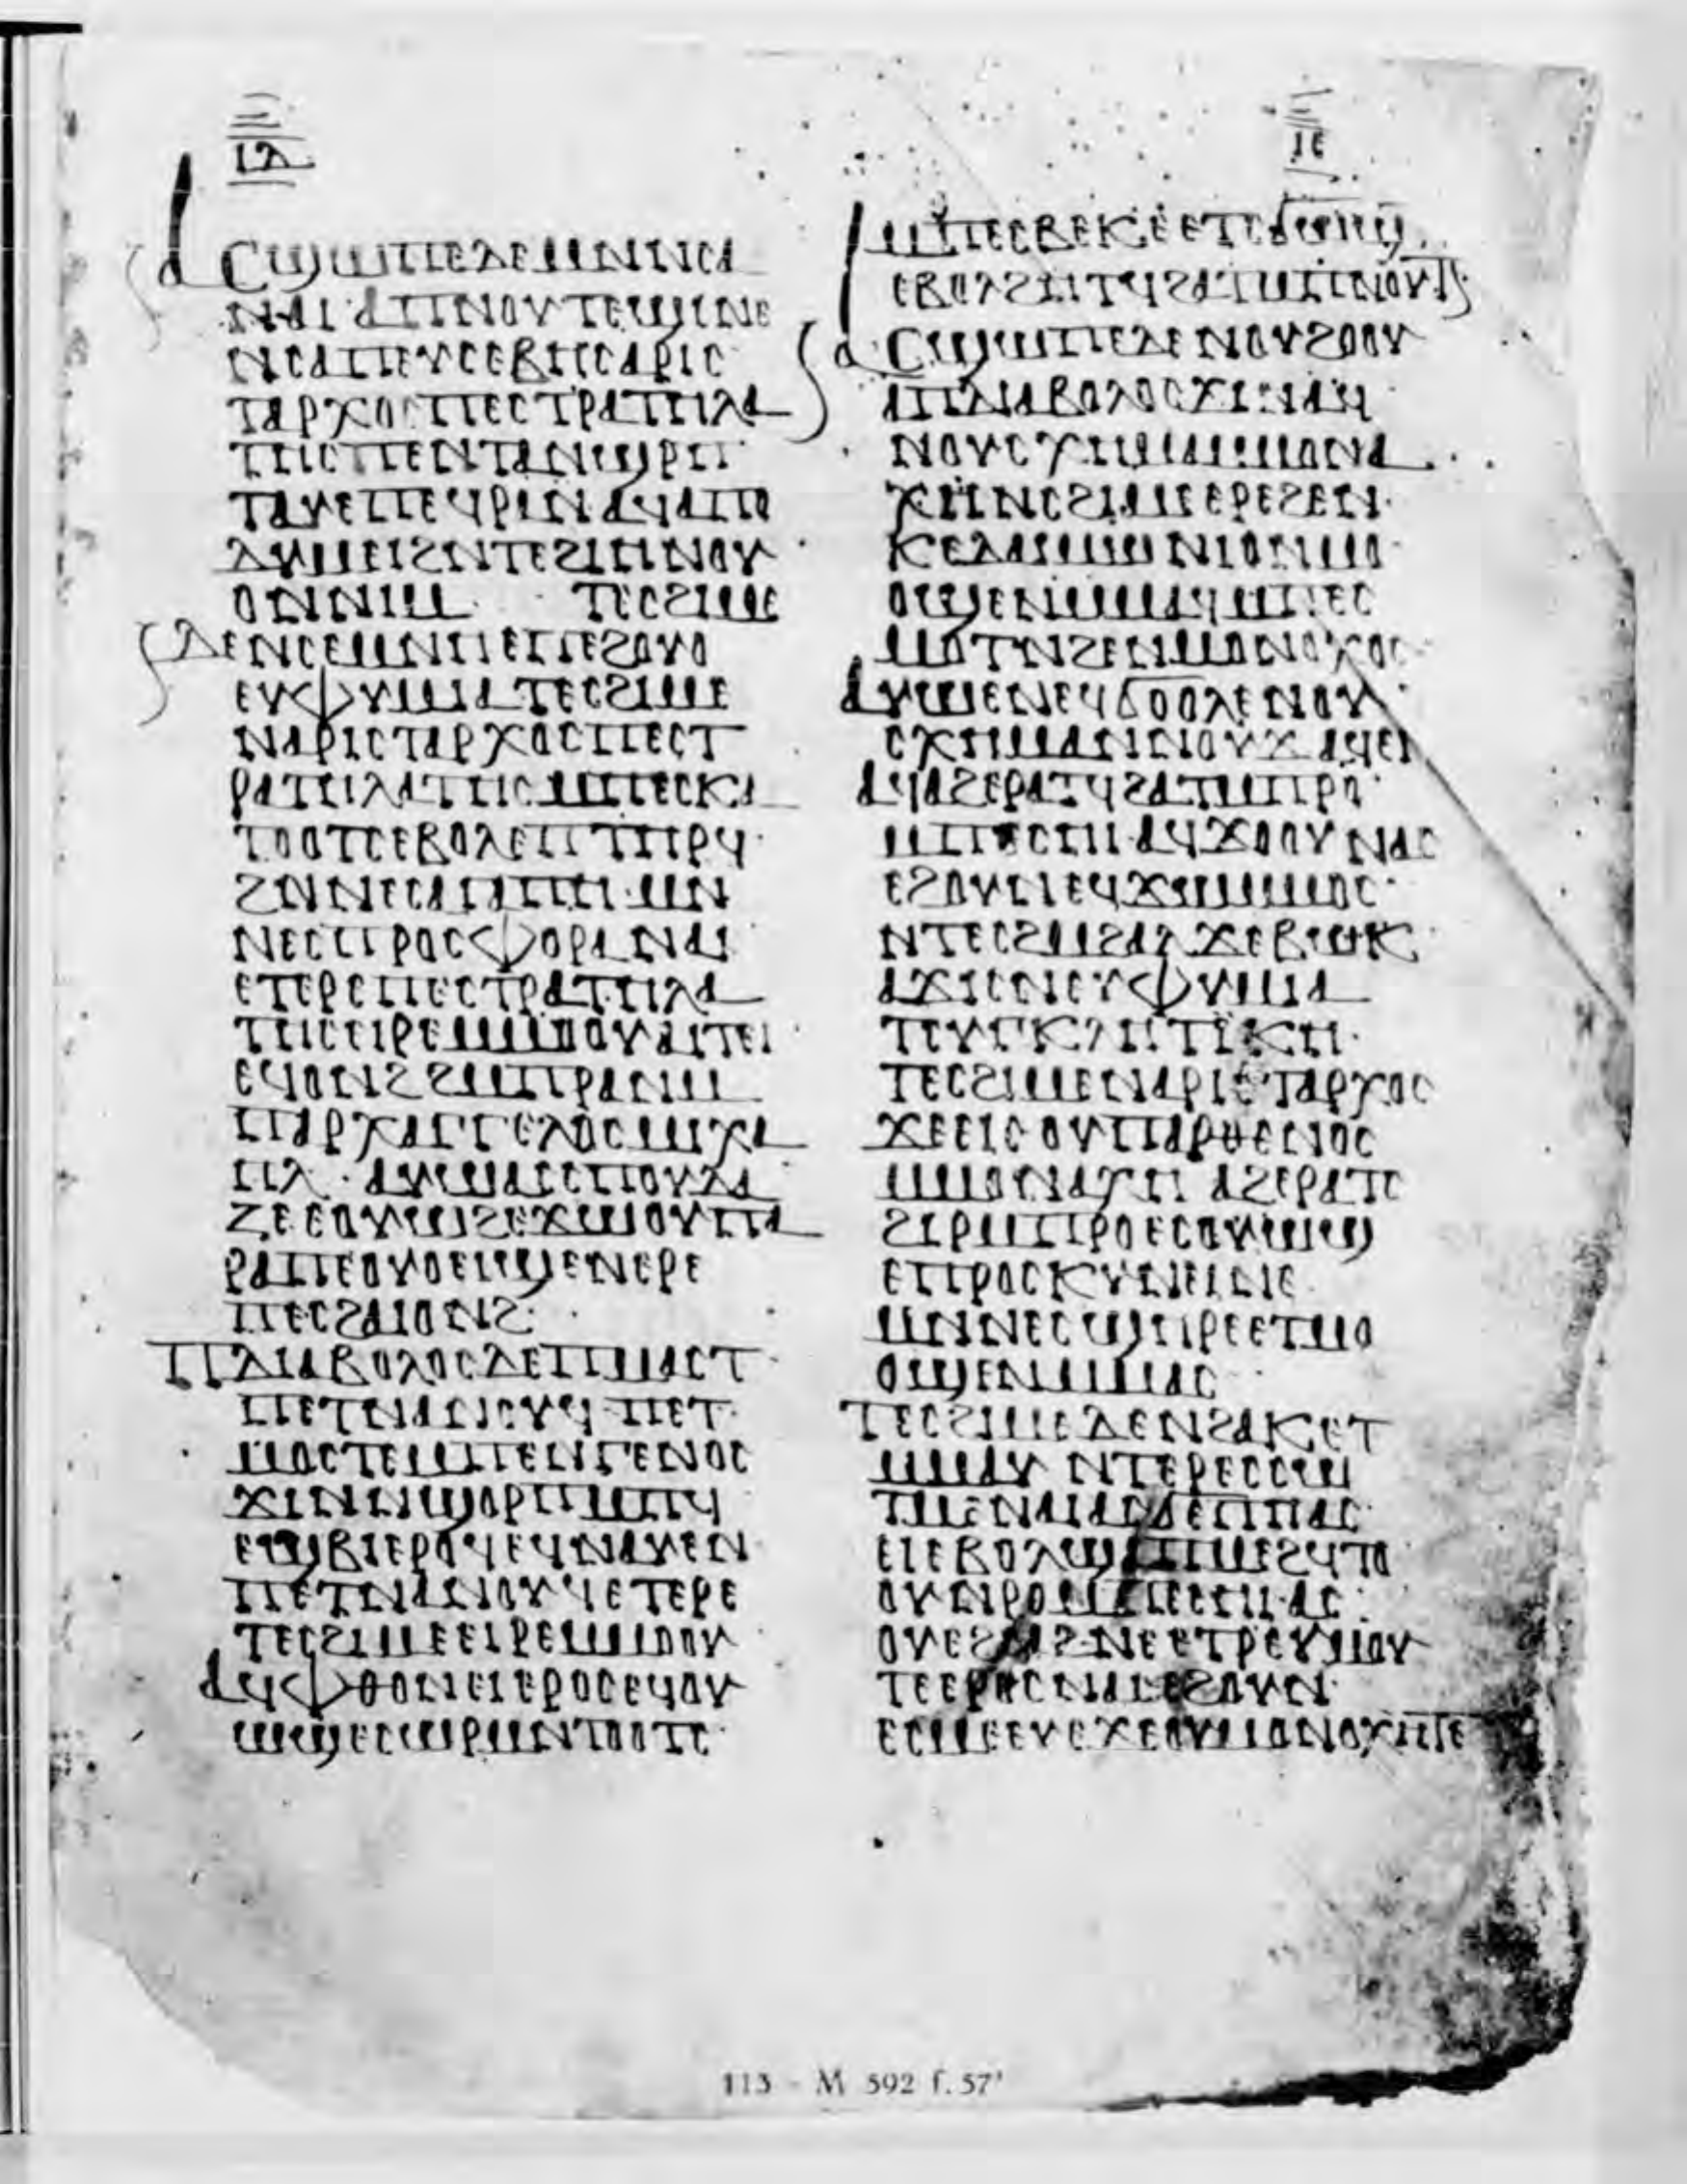 ⲓⲇ
ⲓⲉ
ⲁⲥϣⲱⲡⲉ ⲇⲉ ⲙⲛⲛⲥⲁ
ⲛⲁⲓ ⲁⲡⲛⲟⲩⲧⲉ ϣⲓⲛⲉ
ⲛⲥⲁⲡⲉⲩⲥⲉⲃⲏⲥ ⲁⲣⲓⲥ
ⲧⲁⲣⲭⲟⲥ ⲡⲉⲥⲧⲣⲁⲧⲏⲗⲁ
ⲧⲏⲥ ⲡⲉⲛⲧⲁⲛϣⲣⲡ
ⲧⲁⲩⲉ ⲡⲉϥⲣⲁⲛ ⲁϥⲁⲡⲟ
ⲗⲩⲙⲉⲓ ϩⲛⲧⲉϩⲓⲏ ⲛⲟⲩ
ⲟⲛ ⲛⲓⲙ ⲧⲉⲥϩⲓⲙⲉ
ⲇⲉ ⲛⲥⲉⲙⲛⲏ ⲉⲡⲉϩⲟⲩⲟ
ⲉⲩⲫⲩⲙⲓⲁ ⲧⲉⲥϩⲓⲙⲉ
ⲛⲁⲣⲓⲥⲧⲁⲣⲭⲟⲥ ⲡⲉⲥⲧ
ⲣⲁⲧⲏⲗⲁⲧⲏⲥ ⲙⲡⲉⲥⲕⲁ
ⲧⲟⲟⲧⲥ ⲉⲃⲟⲗ ⲉⲡⲧⲏⲣϥ
ϩⲛⲛⲉⲥⲁⲅⲁⲡⲏ ⲙⲛ
ⲛⲉⲥⲡⲣⲟⲥⲫⲟⲣⲁ ⲛⲁⲓ
ⲉⲧⲉⲣⲉⲡⲉⲥⲧⲣⲁⲧⲏⲗⲁ
ⲧⲏⲥ ⲉⲓⲣⲉ ⲙⲙⲟⲟⲩ ⲁⲓⲧⲉⲓ
ⲉϥⲟⲛϩ ϩⲙⲡⲣⲁⲛ ⲙ
ⲡⲁⲣⲭⲁⲅⲅⲉⲗⲟⲥ ⲙⲓⲭⲁ
ⲏⲗ ⲁⲩⲱ ⲁⲥⲥⲡⲟⲩⲇⲁ
ⲍⲉ ⲉⲟⲩⲱϩ ⲉϫⲱⲟⲩ ⲡⲁ
ⲣⲁ ⲡⲉⲟⲩⲟⲉⲓϣ ⲉⲛⲉⲣⲉ
ⲡⲉⲥϩⲁⲓ ⲟⲛϩ
ⲡⲇⲓⲁⲃⲟⲗⲟⲥ ⲇⲉ ⲡⲙⲁⲥⲧ
ⲡⲉⲧⲛⲁⲛⲟⲩϥ ⲡⲉⲧ
ⲙⲟⲥⲧⲉ ⲙⲡⲉⲛⲅⲉⲛⲟⲥ
ϫⲓⲛⲛϣⲟⲣⲡ ⲙⲡϥ
ⲉϣϥⲓ ⲉⲣⲟϥ ⲉϥⲛⲁⲩ ⲉⲛ
ⲡⲉⲧⲛⲁⲛⲟⲩϥ ⲉⲧⲉⲣⲉ
ⲧⲉⲥϩⲓⲙⲉ ⲉⲓⲣⲉ ⲙⲙⲟⲟⲩ
ⲁϥⲫⲑⲟⲛⲉⲓ ⲉⲣⲟⲥ ⲉϥⲟⲩ
ⲱϣ ⲉⲥⲱⲣⲙ ⲛⲧⲟⲟⲧⲥ
ⲙⲡⲉⲥⲃⲉⲕⲉ ⲉⲧⲥϭⲱϣⲧ
ⲉⲃⲟⲗ ϩⲏⲧϥ ϩⲁⲧⲙⲡⲛⲟⲩⲧⲉ
ⲁⲥϣⲱⲡⲉ ⲇⲉ ⲛⲟⲩϩⲟⲟⲩ
ⲁⲡⲇⲓⲁⲃⲟⲗⲟⲥ ϫⲓ ⲛⲁϥ
ⲛⲟⲩⲥⲭⲏⲙⲁ ⲙⲙⲟⲛⲁ
ⲭⲏ ⲛⲥϩⲓⲙⲉ ⲉⲣⲉϩⲉⲛ
ⲕⲉⲇⲁⲓⲙⲱⲛⲓⲟⲛ ⲙⲟ
ⲟϣⲉ ⲛⲙⲙⲁϥ ⲙⲡⲉⲥ
ⲙⲟⲧ ⲛϩⲉⲛⲙⲟⲛⲟⲭⲟⲥ
ⲁⲩⲱ ⲉⲛⲉϥϭⲟⲟⲗⲉ ⲛⲟⲩ
ⲥⲭⲏⲙⲁ ⲛⲛⲟⲩϫ ⲁϥⲉⲓ
ⲁϥⲁϩⲉⲣⲁⲧϥ ϩⲁⲧⲙⲡⲣⲟ
ⲙⲡⲉⲥⲏⲓ ⲁϥϫⲟⲟⲩ ⲛⲁⲥ
ⲉϩⲟⲩⲛ ⲉϥϫⲱ ⲙⲙⲟⲥ
ⲛⲧⲉⲥϩⲙϩⲁⲗ ϫⲉ ⲃⲱⲕ
ⲁϫⲓⲥ ⲛⲉⲩⲫⲩⲙⲓⲁ
ⲧⲥⲩⲅⲕⲗⲏⲧⲓⲕⲏ
ⲧⲉⲥϩⲓⲙⲉ ⲛⲁⲣⲓⲥⲧⲁⲣⲭⲟⲥ
ϫⲉ ⲉⲓⲥ ⲟⲩⲡⲁⲣⲑⲉⲛⲟⲥ
ⲙⲙⲟⲛⲁⲭⲏ ⲁϩⲉⲣⲁⲧⲥ
ϩⲓⲣⲙⲡⲣⲟ ⲉⲥⲟⲩⲱϣ
ⲉⲡⲣⲟⲥⲕⲩⲛⲉⲓ ⲛⲉ
ⲙⲛⲛⲉⲥϣⲏⲣⲉ ⲉⲧⲙⲟ
ⲟϣⲉ ⲛⲙⲙⲁⲥ
ⲧⲉⲥϩⲓⲙⲉ ⲇⲉ ⲛϩⲁⲕ ⲉⲧ
ⲙⲙⲁⲩ ⲛⲧⲉⲣⲉⲥⲥⲱ
ⲧⲙ ⲉⲛⲁⲓ
ⲉⲓ ⲉⲃⲟⲗ ϣⲁⲡⲙⲉϩϥⲧⲟ
ⲟⲩ ⲛⲣⲟ ⲙⲡⲉⲥⲏⲓ ⲁⲥ
ⲟⲩⲉϩⲥⲁϩⲛⲉ ⲉⲧⲣⲉⲩⲙⲟⲩ
ⲧⲉ ⲉⲣⲟⲥ ⲛⲁⲥ ⲉϩⲟⲩⲛ
ⲉⲥⲙⲉⲉⲩⲉ ϫⲉ ⲟⲩⲙⲟⲛⲟⲭⲏ ⲧⲉ
113 - M 592 f. 57ʳ